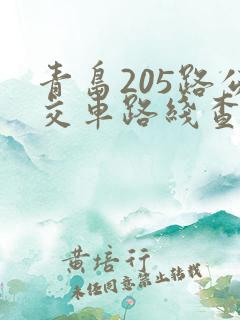 青岛205路公
交车路线查
黄培行
未经同意禁止转载